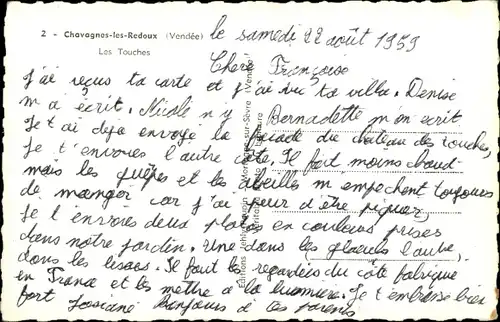 2 - Chavagnes-les-Redoux (Vendée)
Les Touches
le samedi 22 août 1959
Chère Françoise
j'ai reçus ta carte et j'ai vu ta villa. Denise
m'a écrit. Nicole n'y Bernadette m'on écrit
Je t'ai déja envoyé la façade du chateau des touches,
je t'envoies l'autre côté. Il fait moins chaud
mais les guêpes et les abeilles m'empechent toujours
de manger car j'ai peur d'être piquer
Je t'envoies deux photos en couleurs prises
dans notre jardin. Une dans les glaïeuls l'autre,
dans les lisacs. Il faut les regardées du côté fabriqué
en France et les mettre a la lumière. Je t'embrasse bien
fort Josiane bonjours a tes parents
Editions Jehly-Poupin Mortagne-sur-Sèvre (Vendée)